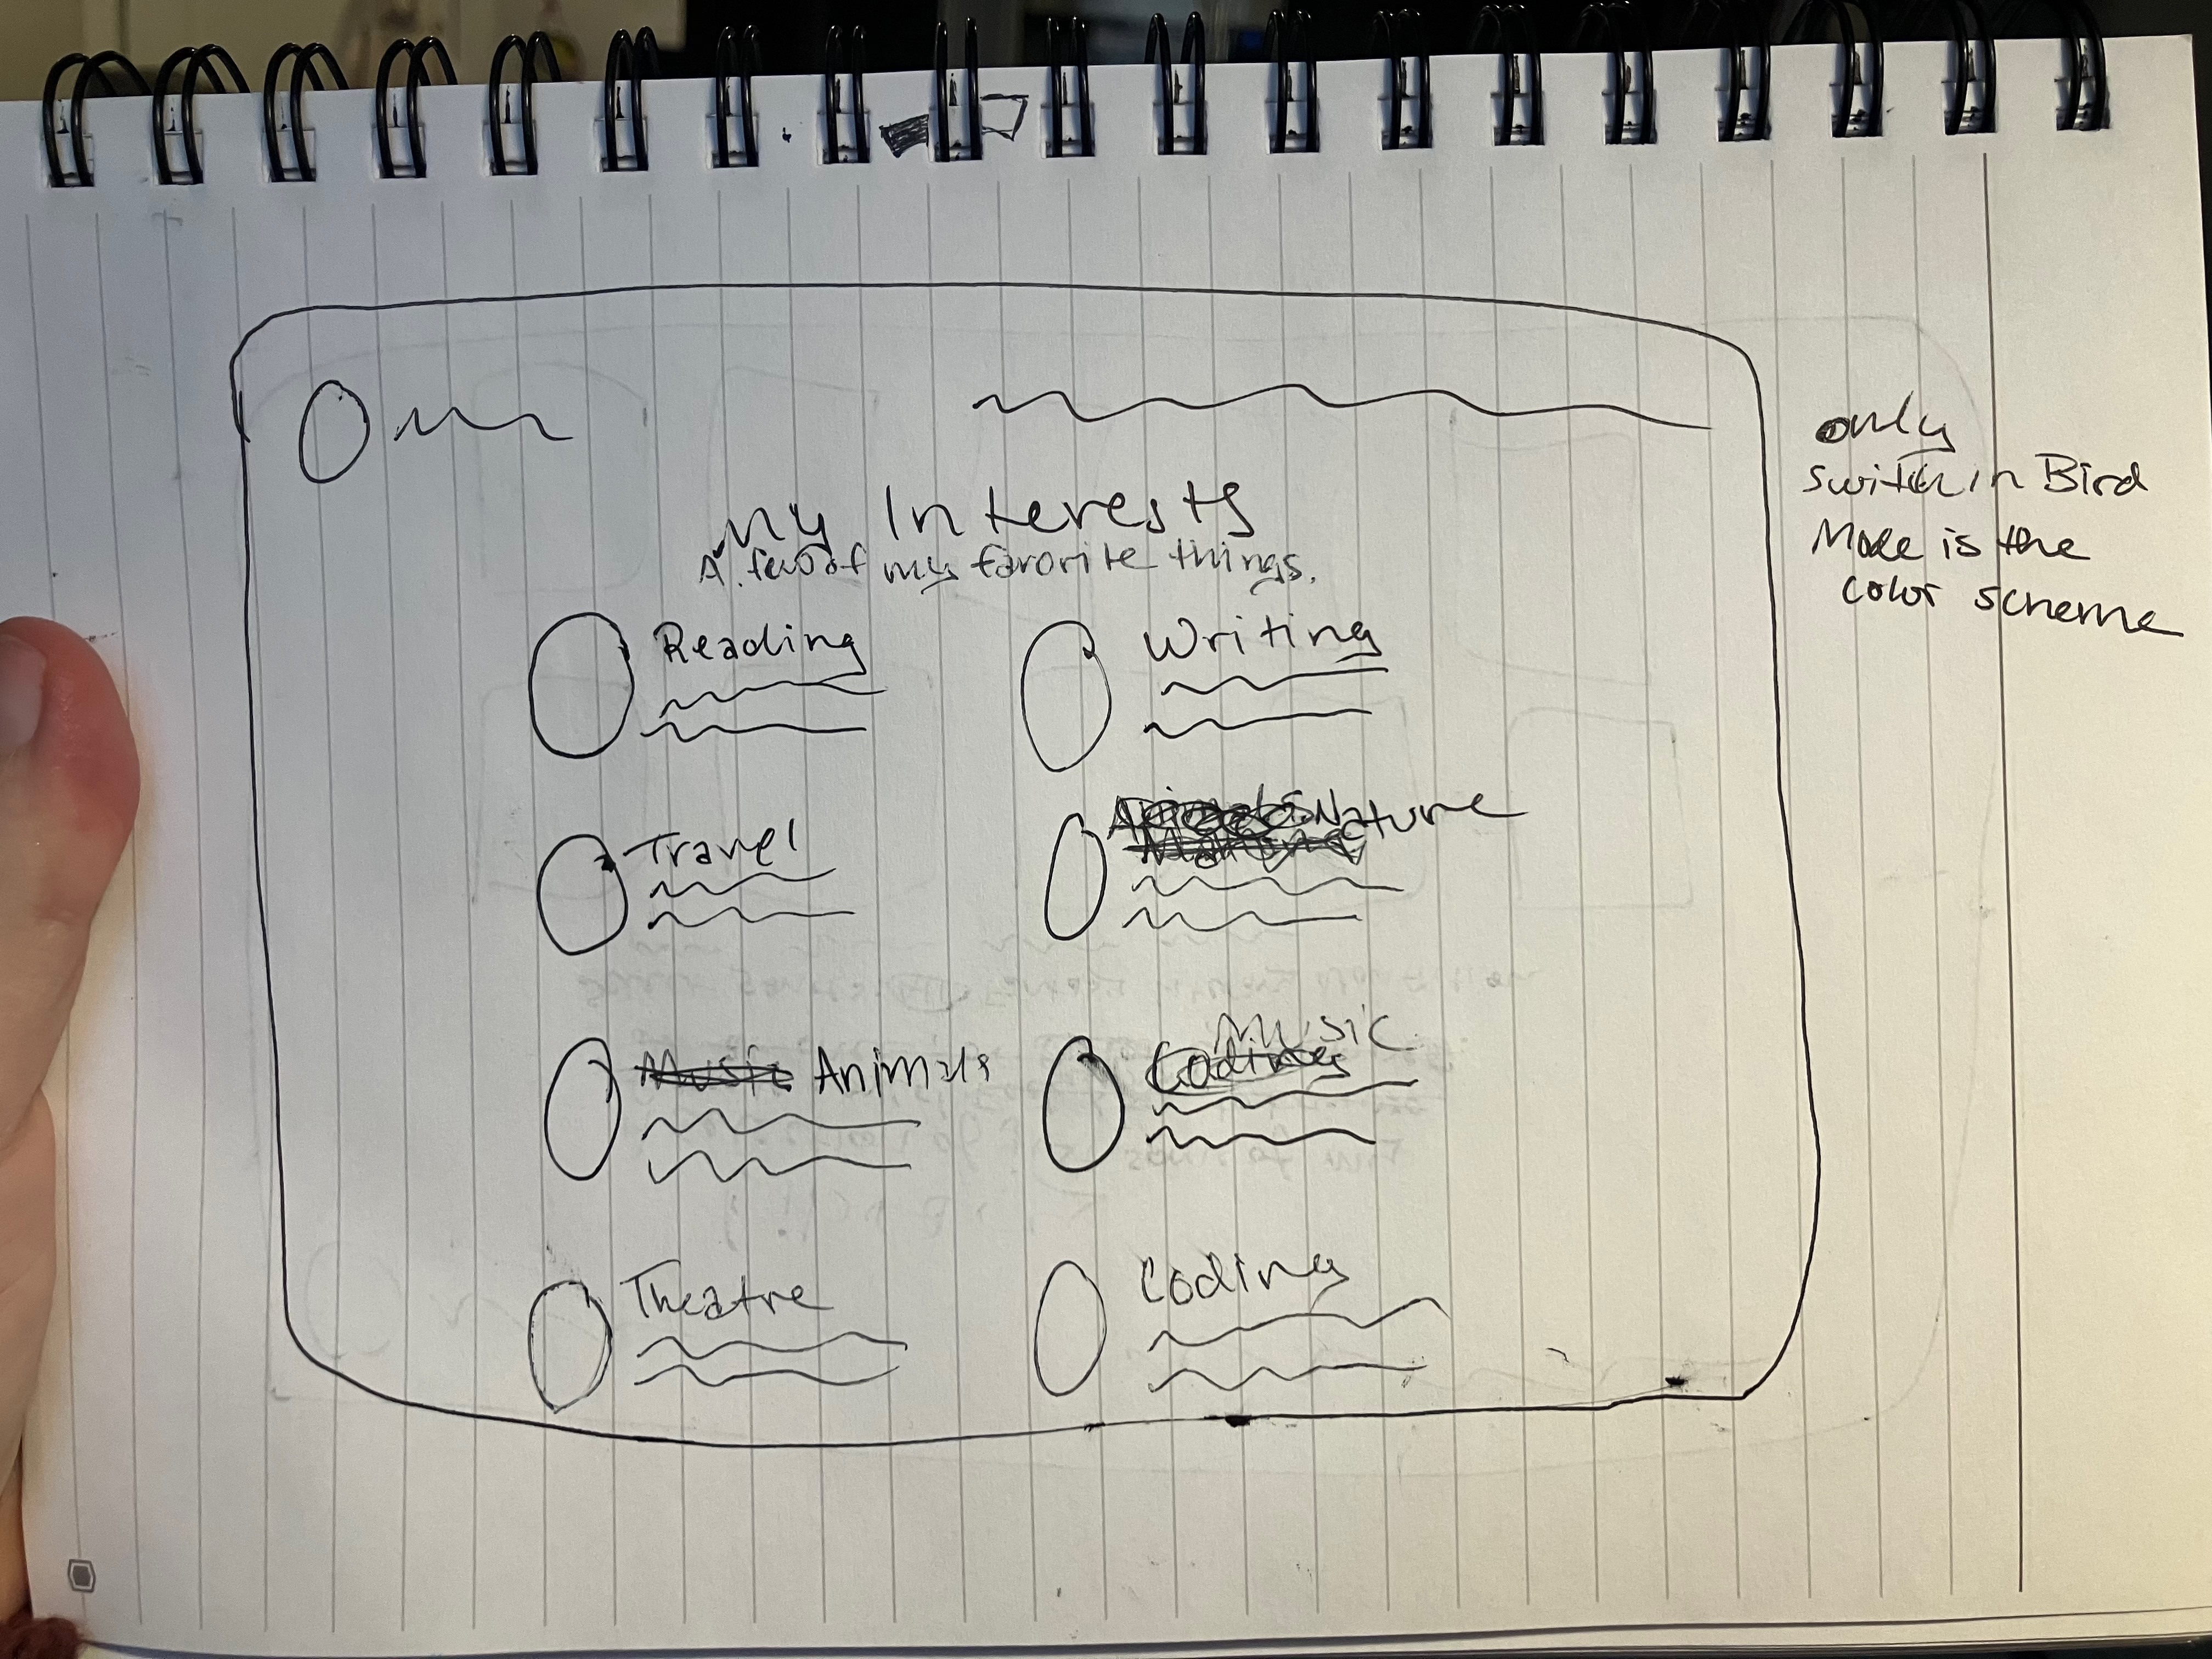 My Interests
A few of my favorite things.
Reading
Writing
Travel
Nature
Music Animals
Music
Coding
Theatre
Coding
only
switch in Bird
Mode is the
color scheme